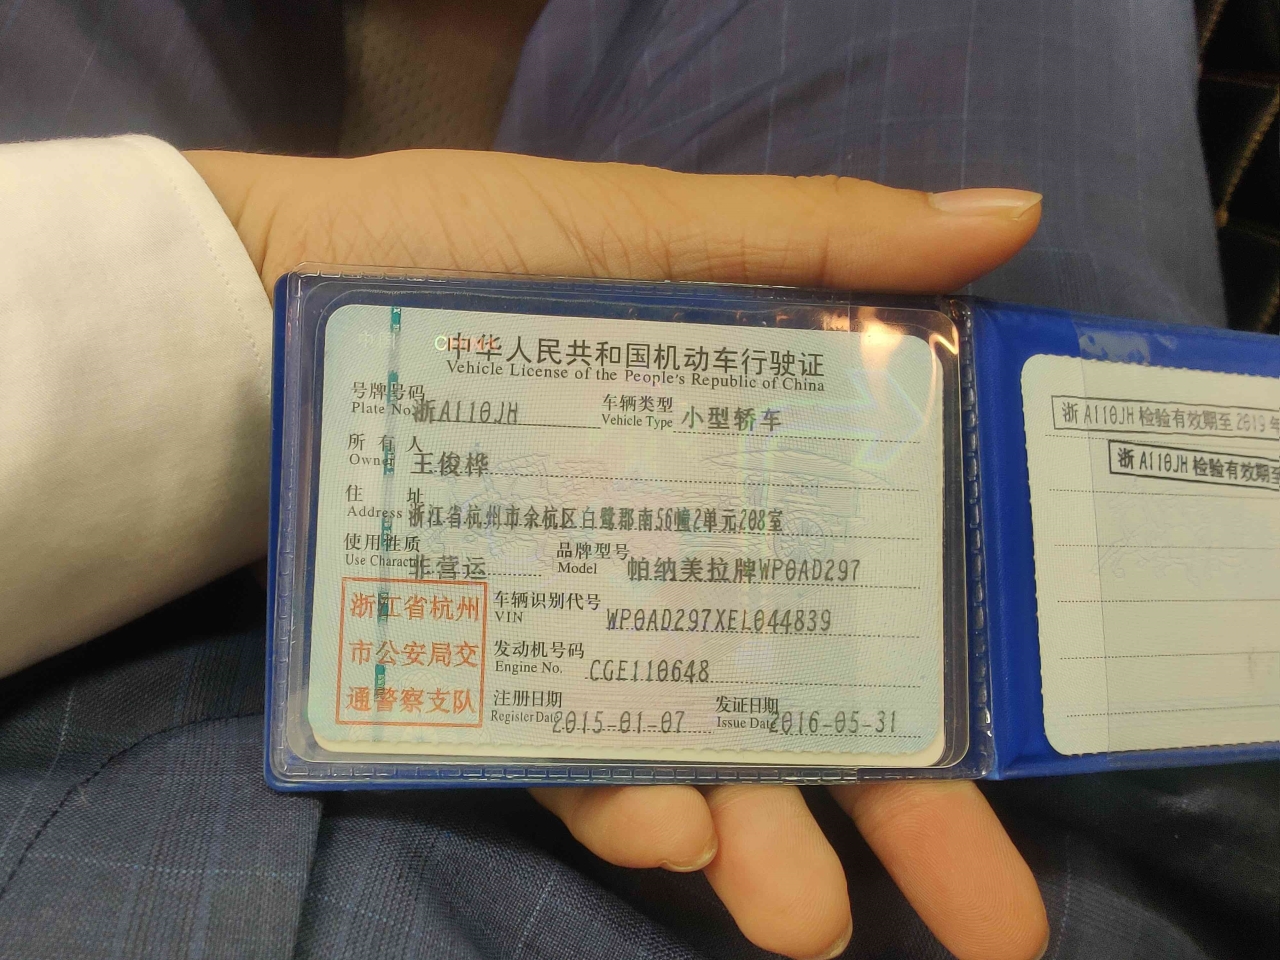 中华人民共和国机动车行驶证
Vehicle License of the People's Republic of China
号牌号码 浙A110JH 车辆类型 小型轿车
Plate No. Vehicle Type
所有人 王俊桦
Owner
住址 浙江省杭州市余杭区白鹭郡南56幢2单元208室
Address
使用性质 非营运 品牌型号 帕纳美拉牌WP0AD297
Use Character Model
车辆识别代号 WP0AD297XEL044839
VIN
发动机号码 CGE110648
Engine No.
注册日期 2015-01-07 发证日期 2016-05-31
Register Date Issue Date
浙江省杭州
市公安局交
通警察支队
浙A110JH检验有效期至2019年
浙A110JH检验有效期至